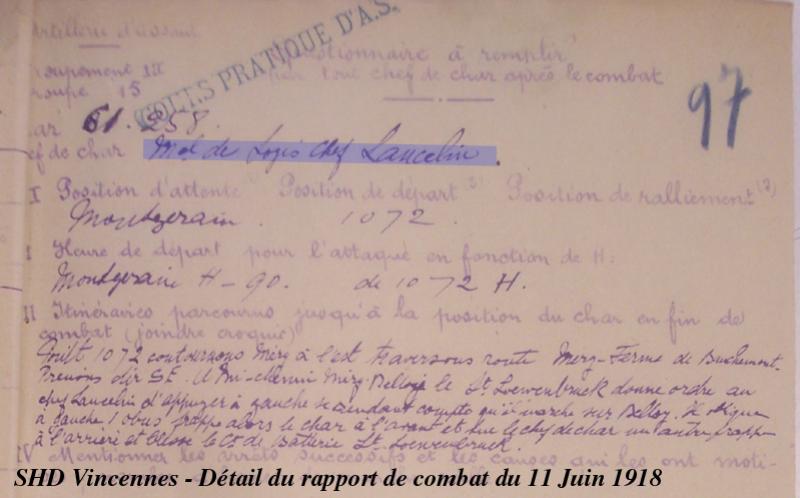 Artillerie d'assaut
COLIS PRATIQUE D'A.S.
Questionnaire à remplir
Groupement III
par tout chef de char après le combat
Groupe 15
97
char 61.258.
chef de char Mal de Logis chef Lancelin.
I Position d'attente Position de départ Position de ralliement (2)
Montgerain. 1072.
I Heure de départ pour l'attaque en fonction de H:
Montgerain H-90. de 1072 H.
II Itinéraires parcourus jusqu'à la position du char en fin de
combat (joindre croquis)
1072 contournons Méry à l'est traversons route Mery-Ferme de Buchemont.
Prenons dir SE. A mi-chemin Méry-Belloy le Lt Loewenbruck donne ordre au
chef Lancelin d'appuyer à gauche se rendant compte qu'il marche sur Belloy. Il oblique
à gauche 1 obus frappe alors le char à l'avant et tue le chef de char un autre frappe
à l'arrière et blesse le Ct de Batterie Lt. Loewenbruck.
IV Mentionner les arrêts successifs et les causes qui les ont moti-
SHD Vincennes - Détail du rapport de combat du 11 Juin 1918